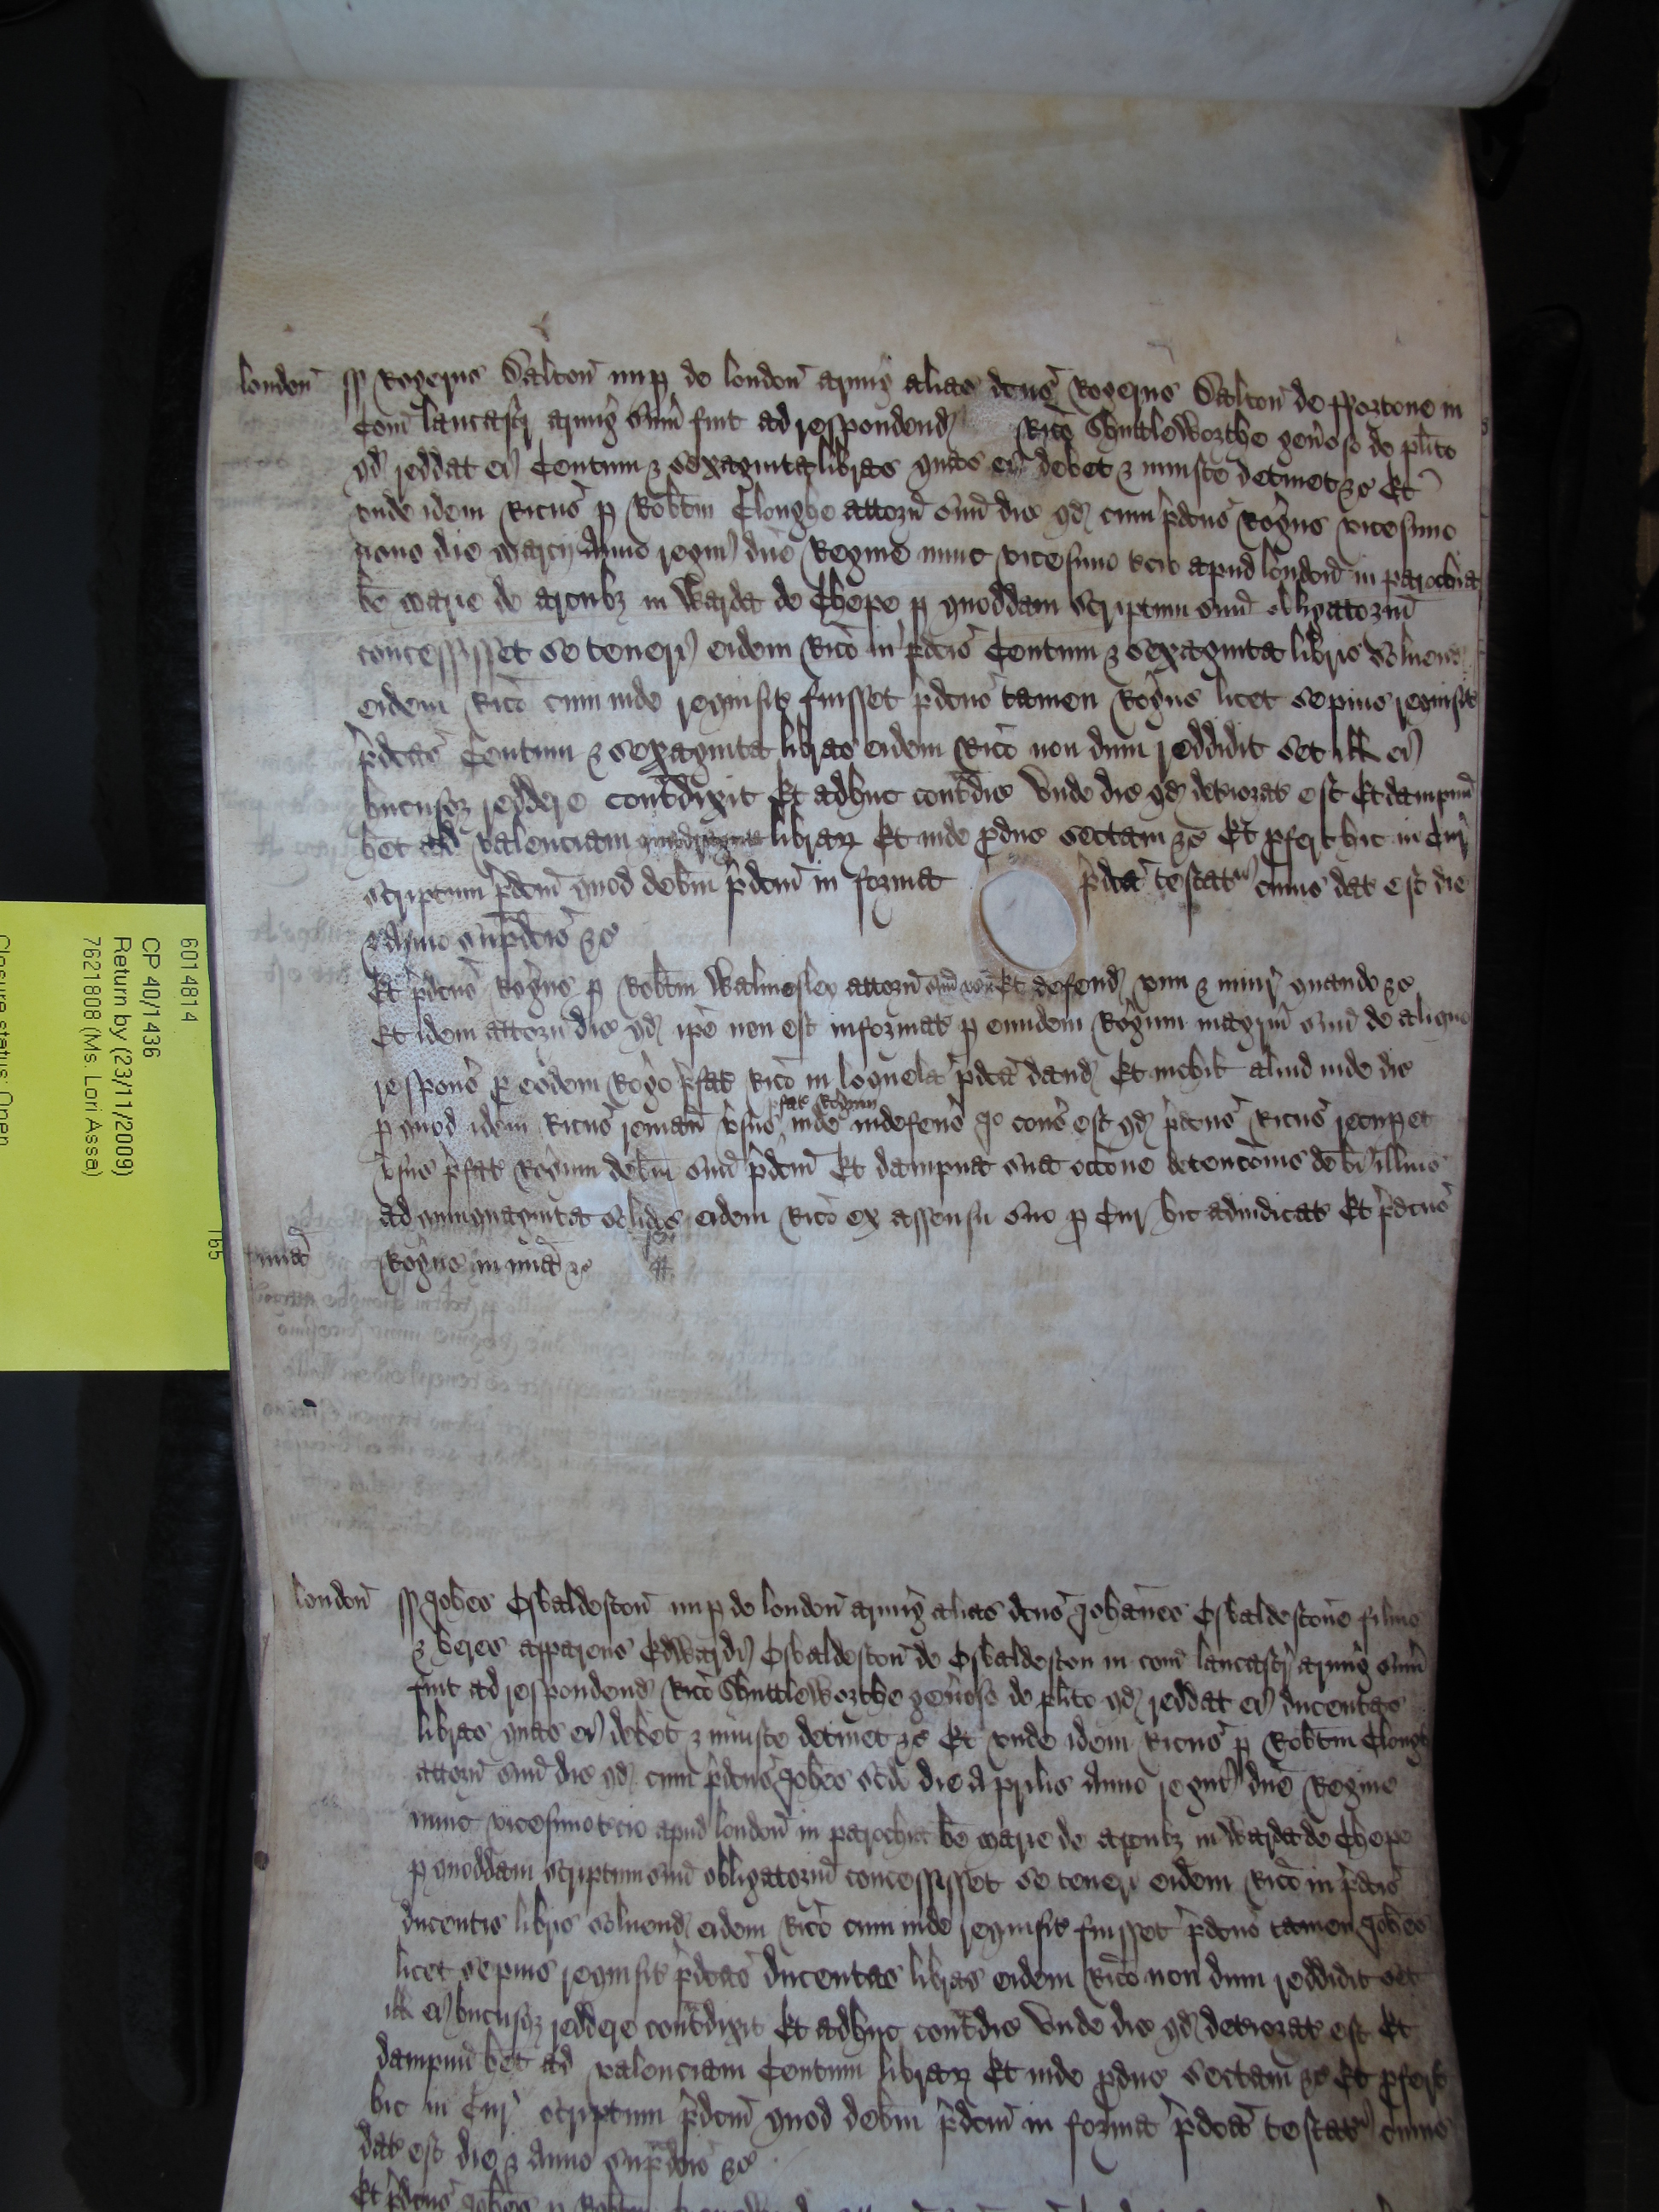 london ss Rogerus Dalton nup de london armig alias dcus Rogerus Dalton de Thortone in
Com lancastr armig sum fuit ad respondend Rico Shuttleworthe genoso de plito
qd reddat ei Centum & sexaginta libras quas ei debet & iniuste detinet &c Et
unde idem Ricus p Robtm Cloughe attorn suu dic qd cum pdcus Rogus vicesimo
nono die marcij Anno regni dne Regine nunc vicesimo tcio apud london in parochia
be marie de arcubz in Warda de Chepe p quoddam scriptum suu obligatoriu
concessisset se teneri eidem Rico in pdcis Centum & sexaginta libris solvend
eidem Rico cum inde requisit fuisset pdcus tamen Rogus licet sepius requisit
pdcas Centum & sexaginta libras eidem Rico non dum reddidit set ill ei
hucusqz reddere contdixit Et adhuc contdic Unde dic qd deteriorat est Et dampnu
het ad valenciam librar Et inde pduc sectam &c Et pfert hic in Cur
scriptum pdcm quod debm pdcm in forma pdca testat cuius dat est die
& Anno supdcis &c
Et pdcus Rogus p Robtm Walmesley attorn suu ven Et defend vim & iniur quando &c
Et idem attorn dic qd ipe non est informat p eundem Rogum magrm suu de aliquo
respons p eodem Rogo pfat Rico in loquela pdca dand Et nichil aliud inde dic
pfat Rogum
p quod idem Ricus reman vsus inde indefens Io cons est qd pdcus Ricus recupet
vsus pfat Rogum debm suu pdcm Et dampna sua occone detencionis debi illius
ad quinquaginta solidos eidem Rico ex assensu suo p Cur hic adiudicat Et pdcus
mia Rogus in mia &c
london ss Johes Osbaldeston nup de london armig alias dcus Johanes Osbaldestone filius
& heres apparens Edwardi Osbaldeston de Osbaldeston in com lancastr armig sum
fuit ad respondend Rico Shuttleworthe genoso de plito qd reddat ei ducentas
libras quas ei debet & iniuste detinet &c Et unde idem Ricus p Robtm Clough
attorn suu dic qd cum pdcus Johes scdo die Aprilis Anno regni dne Regine
nunc vicesimo tcio apud london in parochia be marie de arcubz in Warda de Chepe
p quoddam scriptum suu obligatoriu concessisset se teneri eidem Rico in pdcis
ducentis libris solvend eidem Rico cum inde requisit fuisset pdcus tamen Johes
licet sepius requisit pdcas ducentas libras eidem Rico non dum reddidit set
ill ei hucusqz reddere contdixit Et adhuc contdic Unde dic qd deteriorat est Et
dampnu het ad valenciam Centum librar Et inde pduc sectam &c Et pfert
hic in Cur scriptum pdcm quod debm pdcm in forma pdca testat cuius
dat est die & Anno supdcis &c
Et pdcus Johes p Robtm
6014814
CP 40/1436
Return by (23/11/2009)
7621808 (Ms. Lori Assa)
165
Closure status: Open